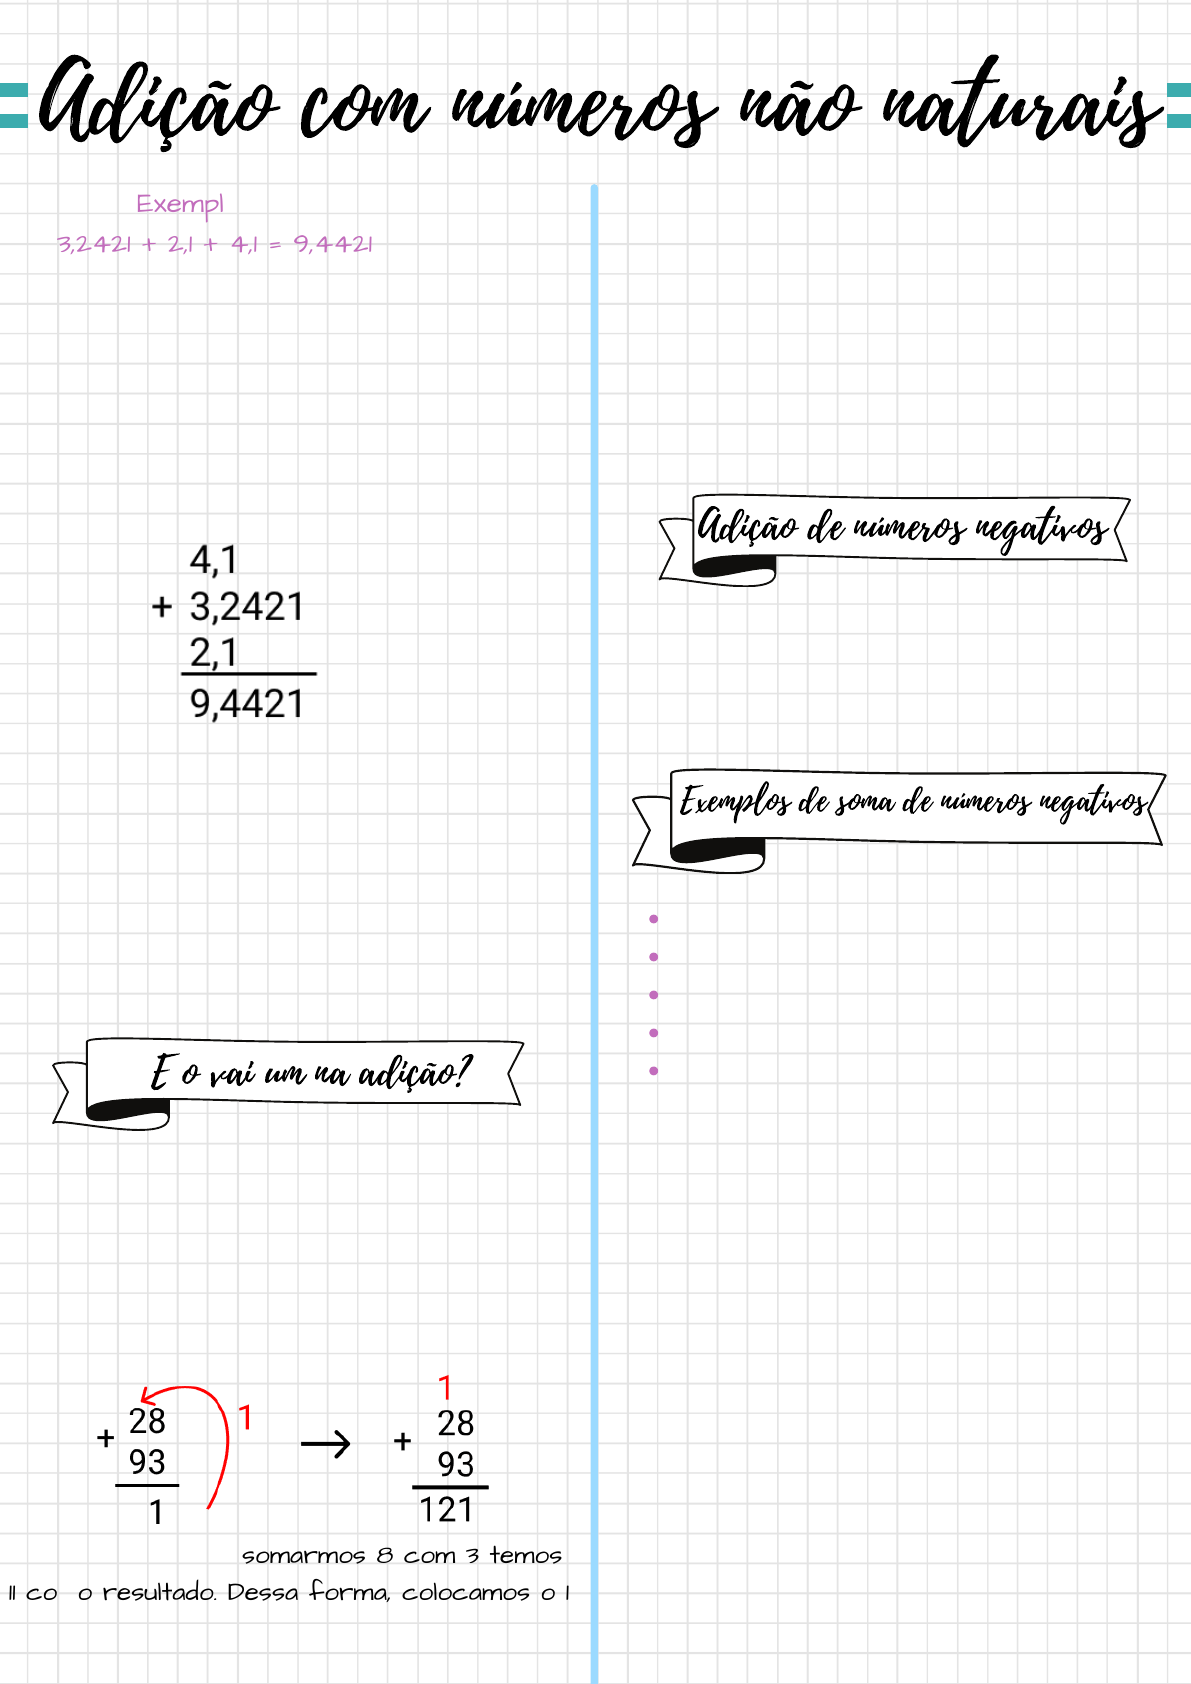 Adição com números não naturais
Exempl
3,2421 + 2,1 + 4,1 = 9,4421
4,1
+ 3,2421
2,1
9,4421
E o vai um na adição?
28
+
93
1
1
→
1
28
+
93
121
somarmos 8 com 3 temos
11 co o resultado. Dessa forma, colocamos o 1
Adição de números negativos
Exemplos de soma de números negativos